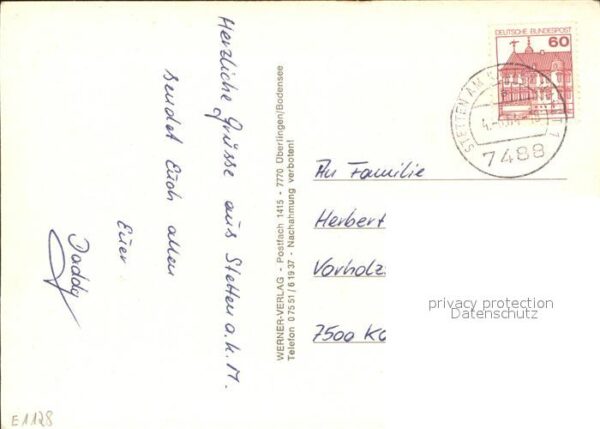 Herzliche Grüsse aus Stetten a.k.M.
sendet Euch allen
Euer
Daddy
WERNER-VERLAG - Postfach 1415 - 7770 Überlingen/Bodensee
Telefon 07551/61937 - Nachahmung verboten!
DEUTSCHE BUNDESPOST
60
STETTEN AM
7488
An Familie
Herbert
Vorholz
7500
privacy protection
Datenschutz
E1128